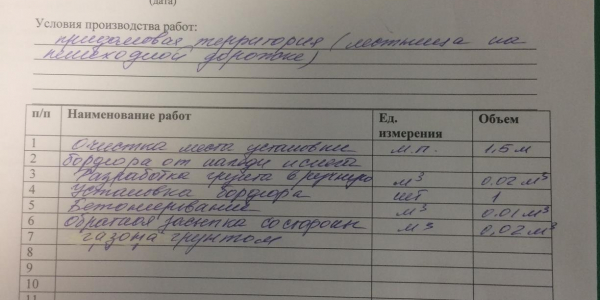 (дата)
Условия производства работ:
придомовая территория (лестница на
пешеходной дорожке)
п/п Наименование работ Ед. измерения Объем
1 Очистка места установки м.п. 1,5 м
2 бордюра от наледи и
3 Разработка грунта вручную м³ 0.02 м³
4 Установка бордюра шт 1
5 Бетонирование м³ 0.01 м³
6 обратная засыпка со сторон м³ 0,02 м³
7 газона грунтом
8
9
10
11